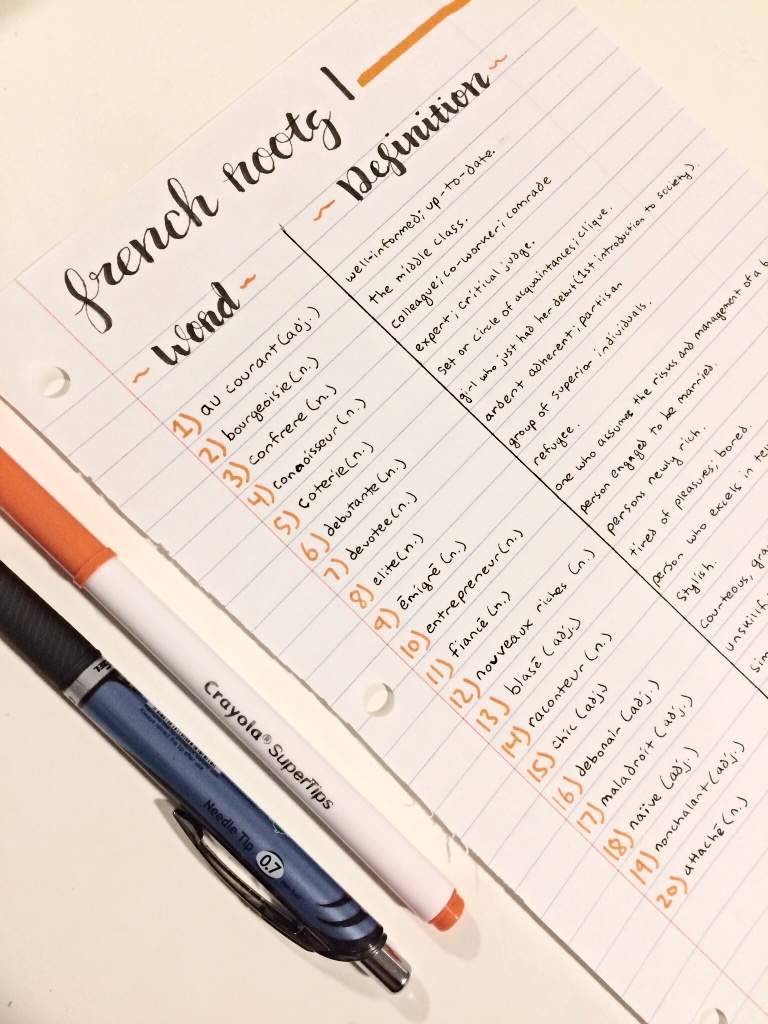 french roots 1
~ Word ~
1) au courant (adj.)
2) bourgeoisie (n.)
3) confrere (n.)
4) connoisseur (n.)
5) coterie (n.)
6) debutante (n.)
7) devotee (n.)
8) elite (n.)
9) émigré (n.)
10) entrepreneur (n.)
11) fiancé (n.)
12) nouveaux riches (n.)
13) blasé (adj.)
14) raconteur (n.)
15) chic (adj)
16) debonair (adj.)
17) maladroit (adj.)
18) naïve (adj.)
19) nonchalant (adj.)
20) attaché (n.)
~ Definition ~
well-informed; up-to-date.
the middle class.
colleague; co-worker; comrade
expert; critical judge.
set or circle of acquaintances; clique.
girl who just had her debut (1st introduction to society).
ardent adherent; partisan
group of superior individuals.
refugee.
one who assumes the risks and management of a b
person engaged to be married.
persons newly rich.
tired of pleasures; bored.
person who excels in tel
stylish.
courteous, gra
unskillf
sim
Crayola® SuperTips
Needle Tip
0.7